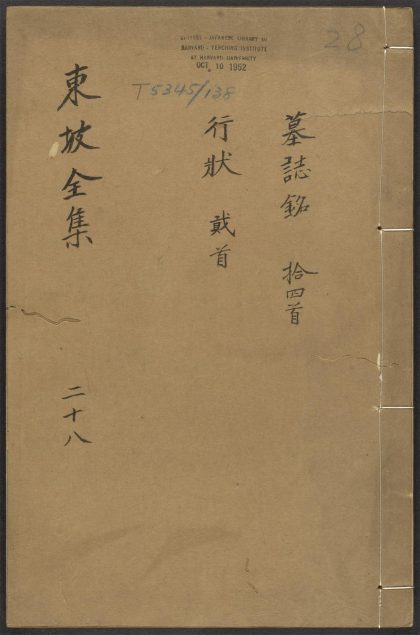 CHINESE - JAPANESE LIBRARY OF
HARVARD - YENCHING INSTITUTE
AT HARVARD UNIVERSITY
OCT 10 1952
28
T5345/138
墓誌銘 拾四首
行狀 貮首
東坡全集
二十八